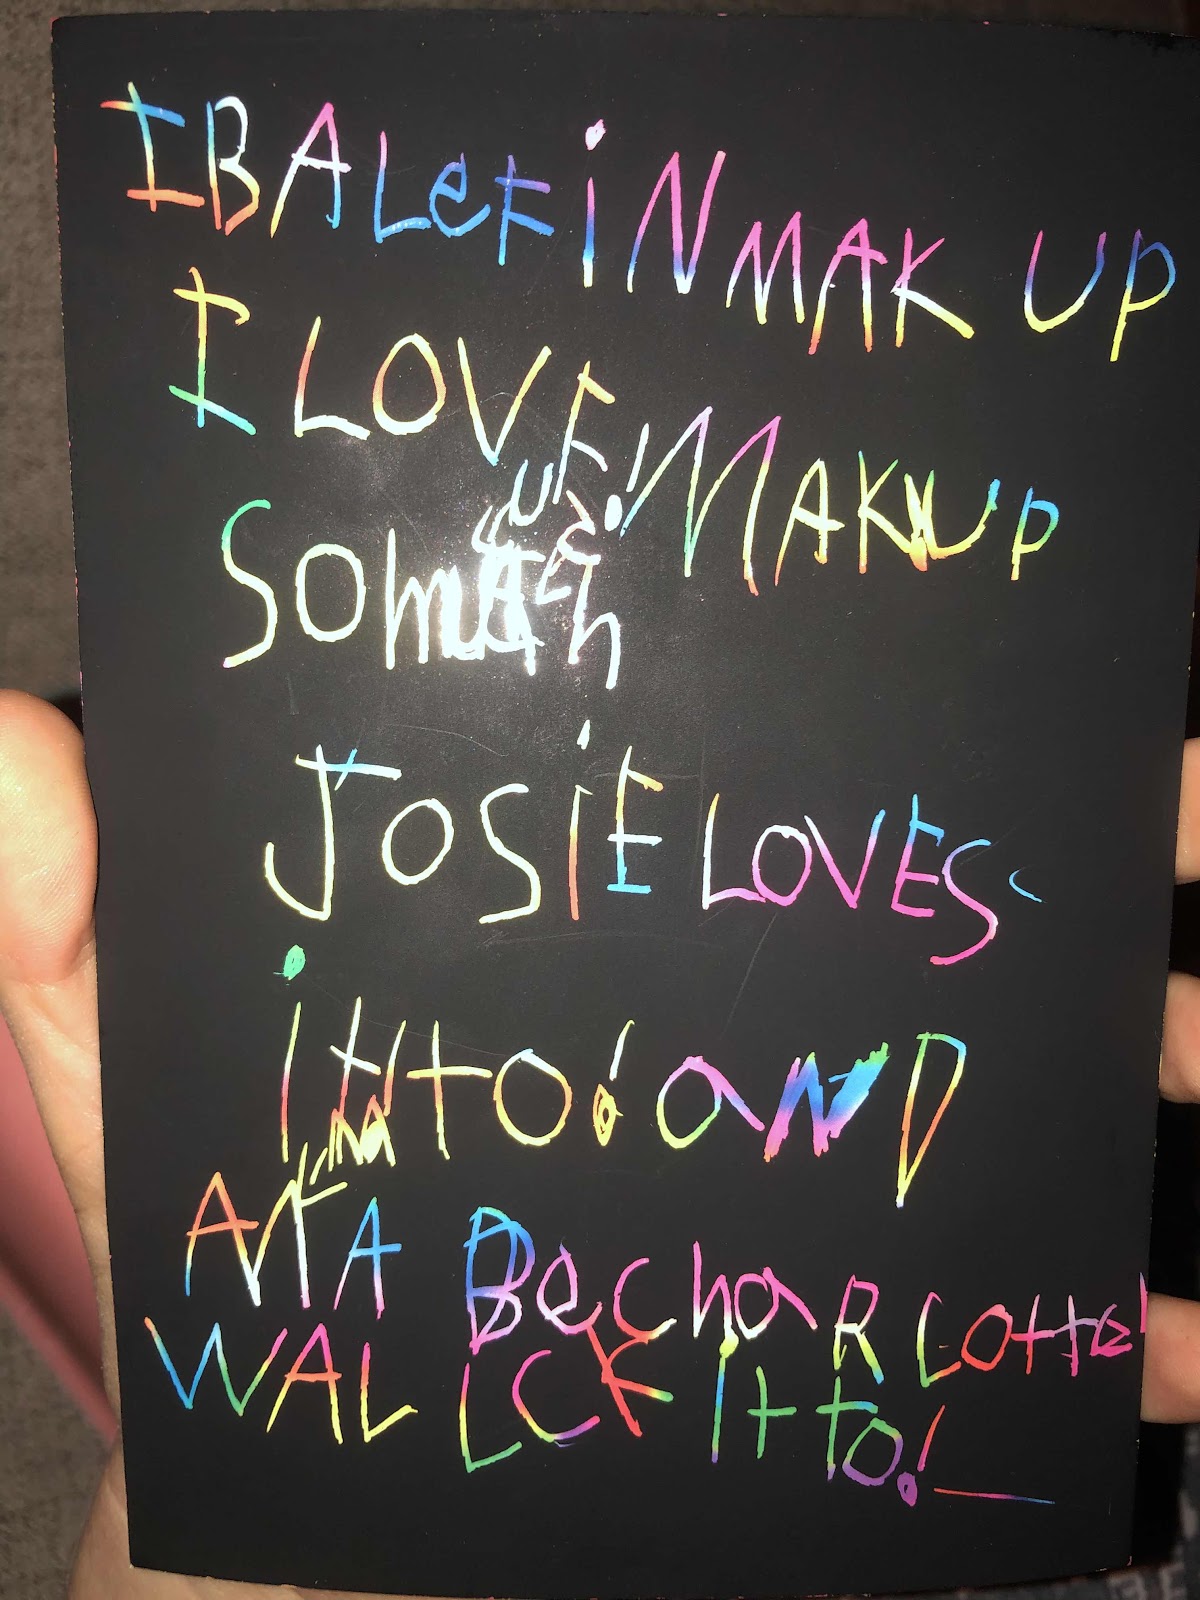 I BALeF iN MAK UP
I LOVE! MAKUP
SO much
JOSiE LOVES
it to! and
ANA BechaRLOtte!
WAL LCK It to!